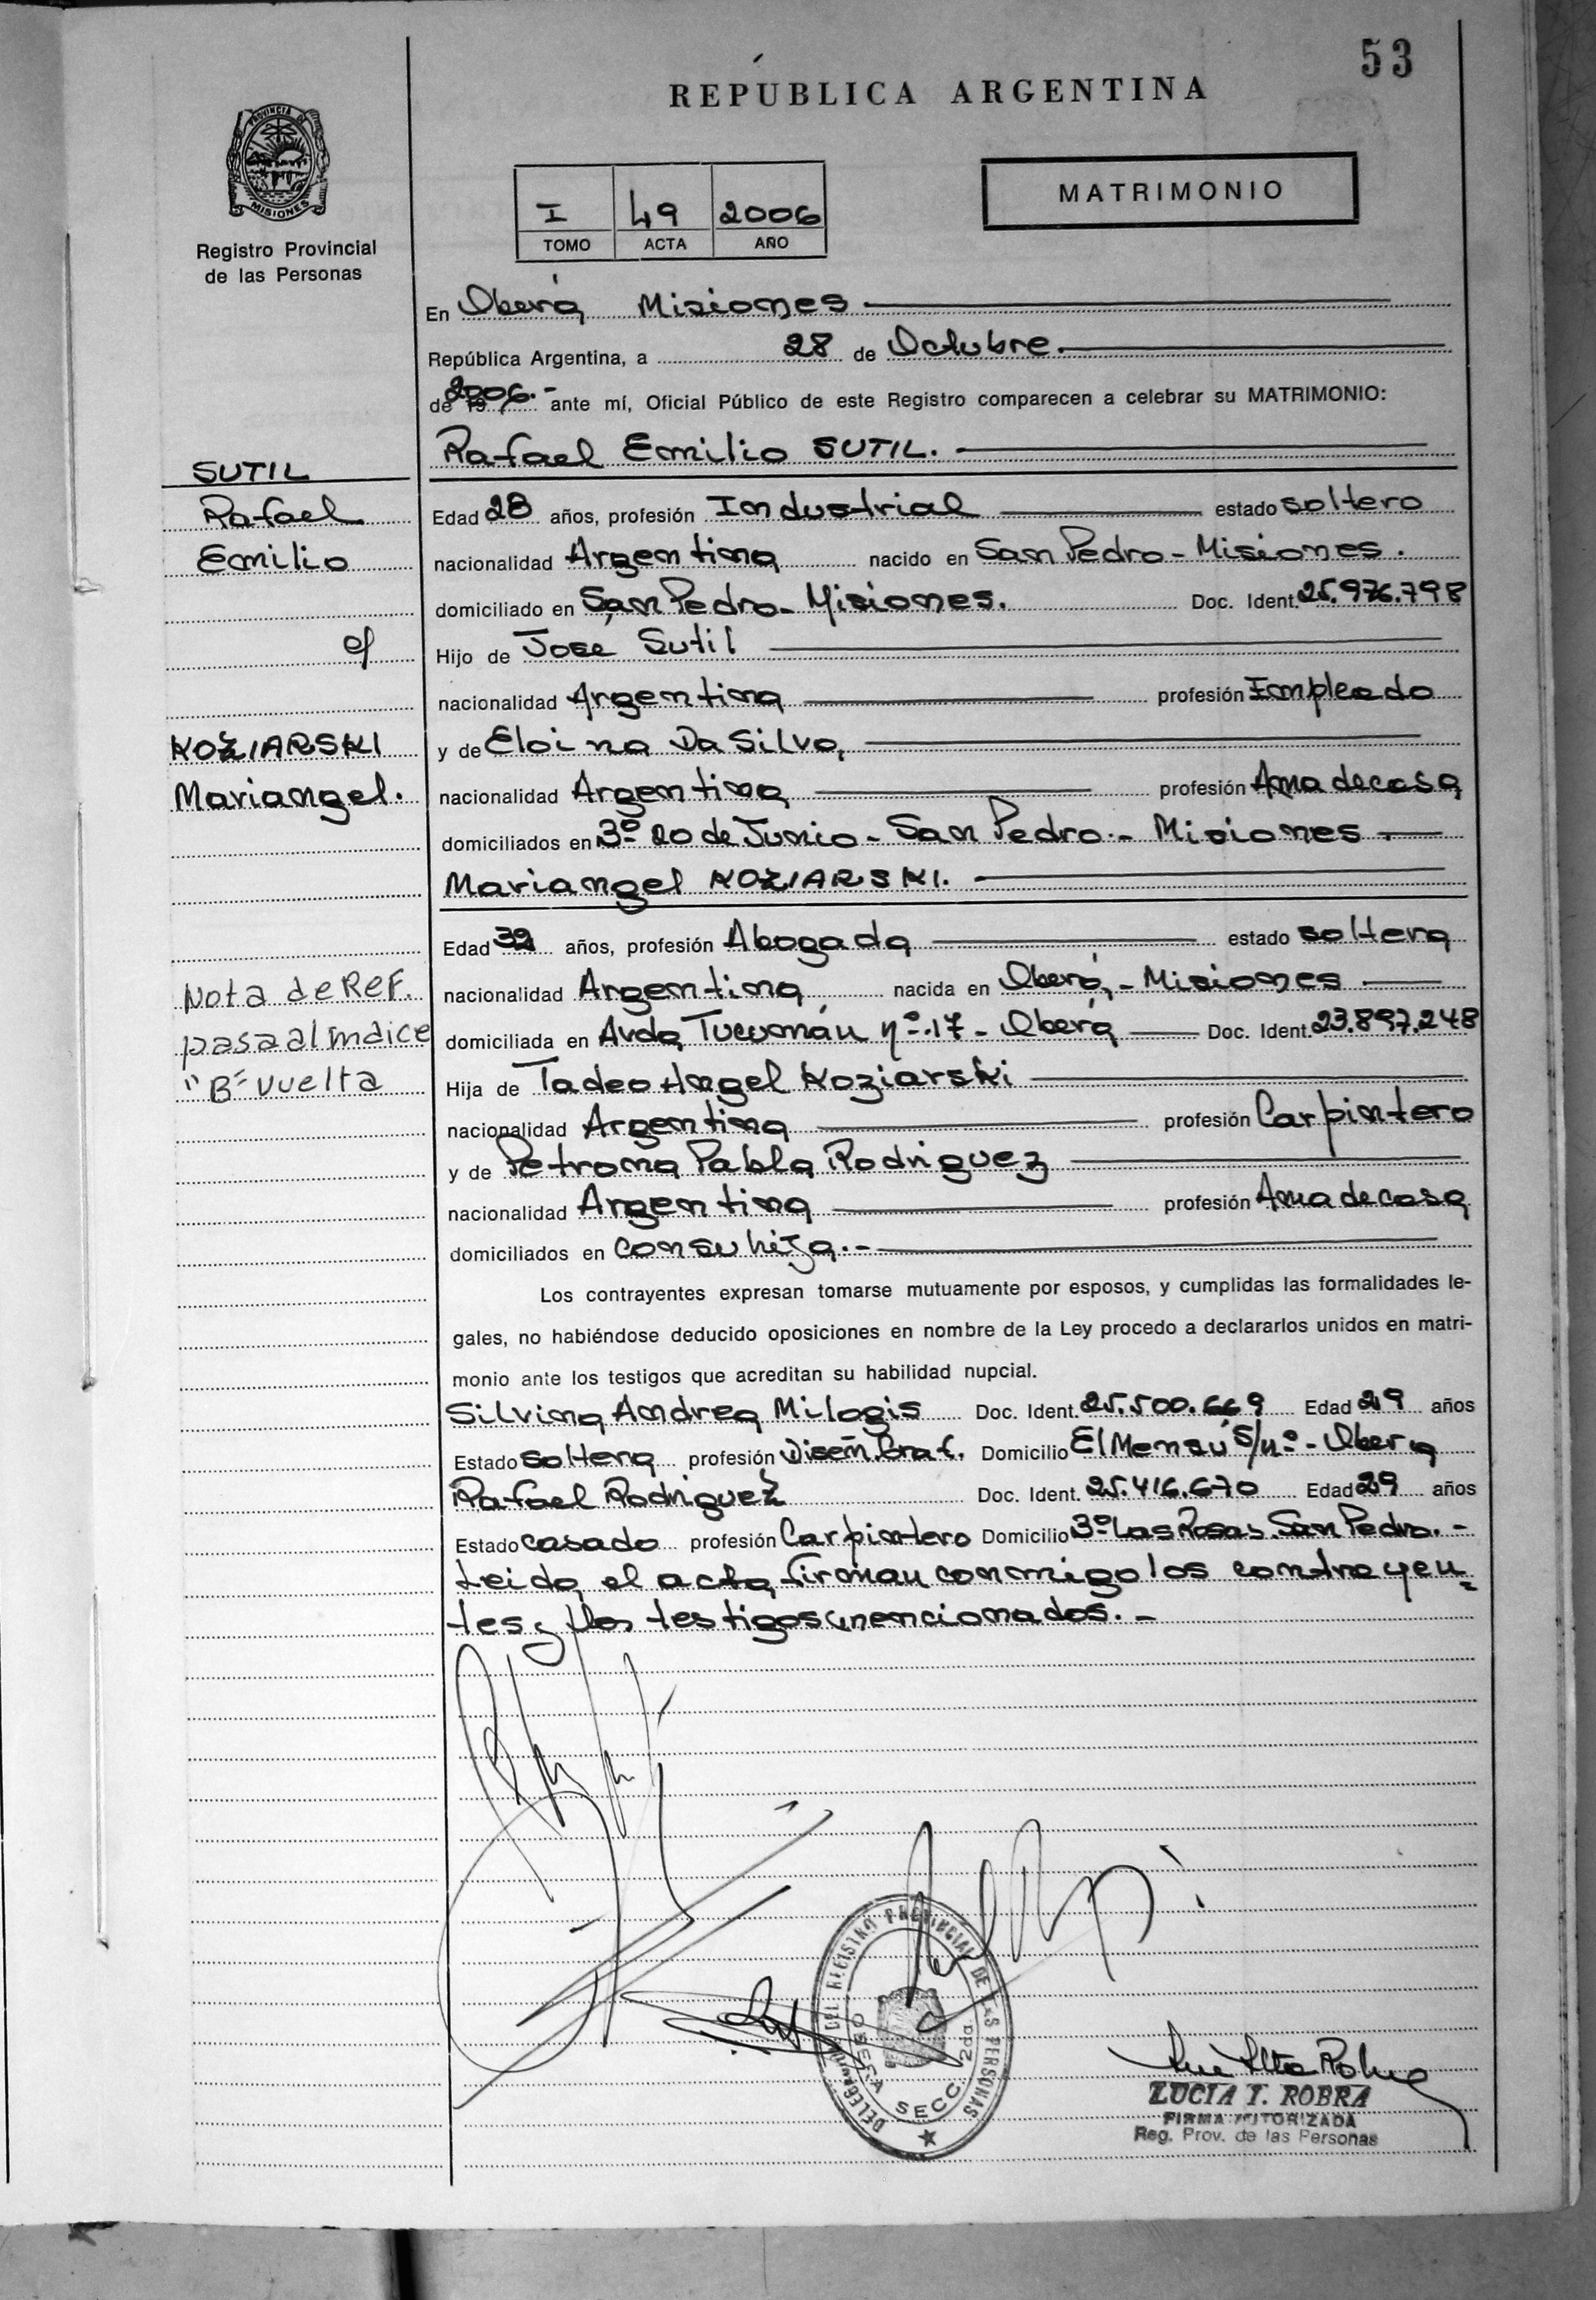 53
REPÚBLICA ARGENTINA
PROVINCIA DE
MISIONES
Registro Provincial
de las Personas
I 49 2006
TOMO ACTA AÑO
MATRIMONIO
En Oberá, Misiones
República Argentina, a 28 de Octubre.
de 19 2006.- ante mí, Oficial Público de este Registro comparecen a celebrar su MATRIMONIO:
Rafael Emilio SUTIL.
SUTIL
Rafael
Emilio
c/
KOZIARSKI
Mariangel.
Edad 28 años, profesión Industrial estado soltero
nacionalidad Argentina nacido en San Pedro - Misiones.
domiciliado en San Pedro - Misiones. Doc. Ident. 25.976.798
Hijo de José Sutil
nacionalidad Argentina profesión Empleado
y de Eloina Da Silva,
nacionalidad Argentina profesión Ama de casa
domiciliados en Bº 20 de Junio - San Pedro - Misiones
Mariangel KOZIARSKI.
Edad 32 años, profesión Abogada estado soltera
nacionalidad Argentina nacida en Oberá, - Misiones
domiciliada en Avda Tucumán nº 17 - Oberá Doc. Ident. 23.897.248
Hija de Tadeo Angel Koziarski
nacionalidad Argentina profesión Carpintero
y de Petrona Pabla Rodriguez
nacionalidad Argentina profesión Ama de casa
domiciliados en con su hija.-
Nota de Ref.
pasa al indice
"B" vuelta
Los contrayentes expresan tomarse mutuamente por esposos, y cumplidas las formalidades le-
gales, no habiéndose deducido oposiciones en nombre de la Ley procedo a declararlos unidos en matri-
monio ante los testigos que acreditan su habilidad nupcial.
Silvina Andrea Milogis Doc. Ident. 25.500.669 Edad 29 años
Estado soltera profesión Diseñ. Graf. Domicilio El Mensú s/nº - Oberá
Rafael Rodriguez Doc. Ident. 25.416.670 Edad 29 años
Estado casado profesión Carpintero Domicilio Bº Las Rosas. San Pedro. -
Leida el acta firman conmigo los contrayen-
tes y los testigos mencionados. -
DELEGACION DEL REGISTRO PROVINCIAL DE LAS PERSONAS
OBERA SECC. 2DA
LUCIA I. ROBRA
FIRMA AUTORIZADA
Reg. Prov. de las Personas